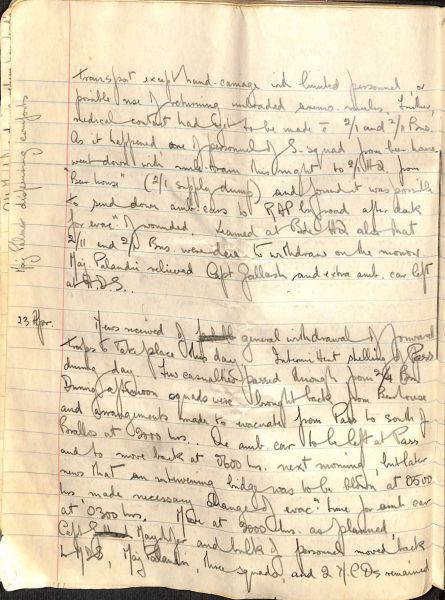 transport except hand-carriage with limited personnel, or
possible use of returning unloaded ammo. mules. Further,
medical contact had yet to be made c̄ 2/1 and 2/ Bns.
As it happened one of personnel of S. squad from beer house
went down with mule train this night to 2/ HQ from
"Beer house" (2/1 supply dump) and found it was possible
to send down amb. cars to RAP by road after dark
for evac" of wounded. Learned at Bde HQ also that
2/11 and 2/ Bns. were due to withdraw on the morrow.
Maj Palandri relieved Capt Gallash and extra amb. car left
at ADS.
23 Apr. News received of general withdrawal of forward
troops to take place this day. Intermittent shelling of Pass
during day. Few casualties passed through from 2/ Bn
During afternoon squads were brought back from Beerhouse
and arrangements made to evacuate from Pass to south of
Bralos at 2000 hrs. One amb. car to be left at Pass
and to move back at 0600 hrs. next morning, but later
news that an intervening bridge was to be blown at 0500
hrs made necessary change of evac" time for amb car
at 0300 hrs. Move at 2000 hrs. as planned,
Capt and bulk of personnel moved back
to MDS, Maj Palandri, three squads and 2 remained
Maj Palmer dispensing comforts